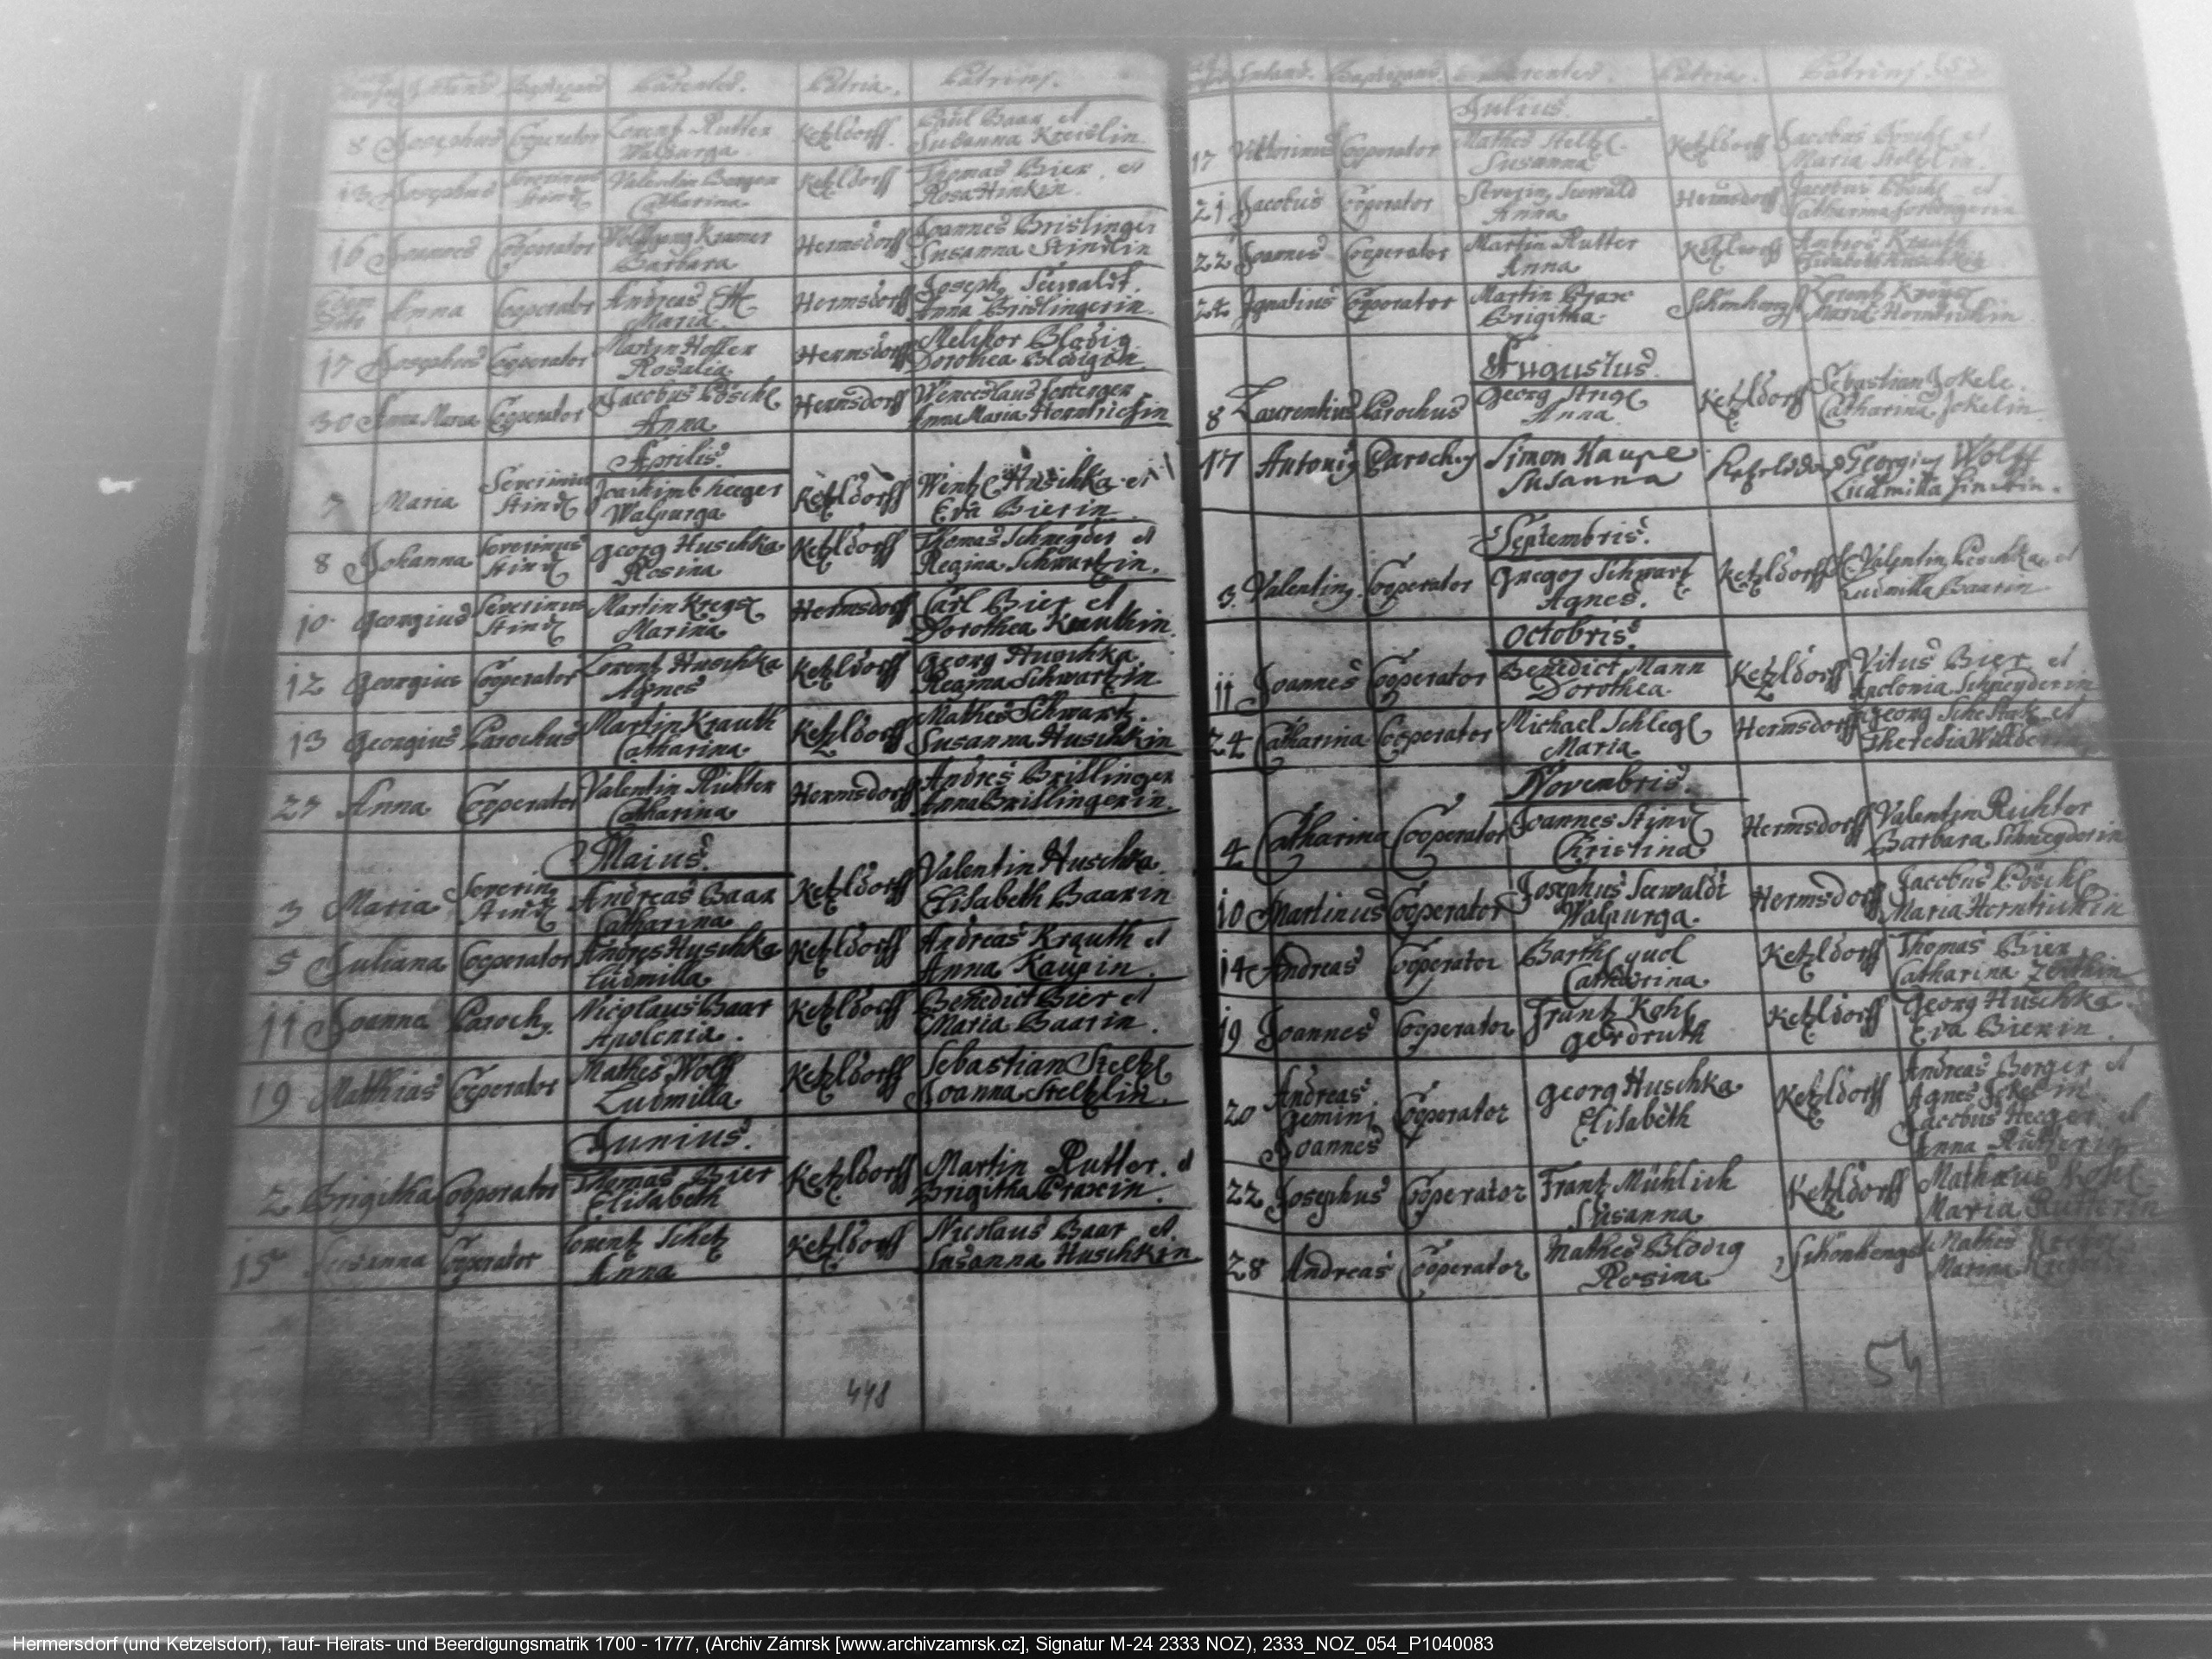 Infans Baptizans Parentes. Patria. Patrini.
8 Josephus Cooperator Lorentz Rutter Ketzldorff. Paul Baar et
Walpurga. Susanna
13 Josephus Severinus Valentin Berger Ketzldorff Thomas Bier. et
Stindl Catharina Rosa Hinkin.
16 Joannes Cooperator Wolffgang Kramer Hermsdorff Joannes Brislinger
Barbara Susanna Stindlin
Anna Cooperator Andreas Hermsdorff Joseph Seewaldt.
Maria. Anna Brislingerin.
17 Josephus Cooperator Martin Hoffer Hermsdorff Melchor Blodig
Rosalia. Dorothea Blodigin.
30 Anna Maria Cooperator Jacobus Pöschl Hermsdorff Wenceslaus
Anna Anna Maria Horntrichin
Aprilis.
7 Maria Severinus Joachimb Heeger Ketzldorff Wentzl Huschka et
Stindl Walpurga Eva Bierin
8 Johanna Severinus Georg Huschka Ketzldorff Thomas Schneyder et
Stindl Rosina Regina Schwartzin.
10 Georgius Severinus Martin Hermsdorff Carl Bier et
Stindl Marina Dorothea Krauthin
12 Georgius Cooperator Lorentz Huschka Ketzldorff Georg Huschka
Agnes Regina Schwartzin
13 Georgius Parochus Martin Krauth Ketzldorff Mathes Schwartz.
Catharina Susanna Huschkin
27 Anna Cooperator Valentin Richter Hermsdorff Andres Brislinger
Catharina Anna Brislingerin.
Maius.
3 Maria Severin Andreas Baar Ketzldorff Valentin Huschka.
Stindl Catharina Elisabeth Baarin
5 Juliana Cooperator Andres Huschka Ketzldorff Andreas Krauth et
Ludmilla Anna Kaupin.
11 Joanna Paroch9 Nicolaus Baar Ketzldorff Benedict Bier et
Apolonia. Maria Baarin.
19 Matthias Cooperator Mathes Wolff Ketzldorff Sebastian Steltzl
Ludmilla Joanna Steltzlin.
Junius.
2 Brigitha Cooperator Thomas Bier Ketzldorff Martin Rutter. et
Elisabeth Brigitha Praxin.
15 Susanna Cooperator Lorentz Schetz Ketzldorff Nicolaus Baar et
Anna Susanna Huschkin
448
Infans. Baptizans. Parentes. Patria. Patrini
Julius.
17 Victorinus Cooperator Mathes Steltzl. Ketzldorff Jacobus Pöschl et
Susanna Maria Steltzlin.
21 Jacobus Cooperator Severin Seewald Hermsdorff Jacobus Pöschl et
Anna Catharina
22 Joannes Cooperator Martin Rutter Ketzldorff Ambros Krauth
Anna Elisabeth
24 Ignatius Cooperator Martin Prax Schönhengst Lorentz
Brigitha Maria Horntrichin
Augustus.
8 Laurentius Parochus Georg Strigl Ketzldorff Sebastian Jokele.
Anna Catharina Jokelin
17 Antoni9 Paroch9 Simon Kaupe Georgi9 Wolff
Susanna Ludmilla
Septembris.
3. Valentin9 Cooperator Gregor Schwartz Ketzldorff Valentin Peschka et
Agnes. Ludmilla Baarin
Octobris.
11 Joannes Cooperator Benedict Mann Ketzldorff Vitus Bier et
Dorothea. Apolonia Schneyderin
24 Catharina Cooperator Michael Schlegl Hermsdorff Georg et
Maria Theresia
Novembris.
4 Catharina Cooperator Joannes Stindl Hermsdorff Valentin Richter
Christina Barbara Schneyderin
10 Martinus Cooperator Josephus Seewaldt Hermsdorff Jacobus Pöschl
Walpurga. Maria Horntrichin
14 Andreas Cooperator Barthl Ketzldorff Thomas Bier
Catharina Catharina
19 Joannes Cooperator Frantz Kohl Ketzldorff Georg Huschka
Gerdruth Eva Bierin
20 Andreas Cooperator Georg Huschka Ketzldorff Andreas Berger et
Gemini Elisabeth Agnes Jokelin
Joannes Jacobus Heeger et
Anna Rutterin
22 Josephus Cooperator Frantz Mühlich Ketzldorff Mathæus Kohl
Susanna Maria Rutterin
28 Andreas Cooperator Mathes Blodig Schönhengst Mathes
Rosina Marina
54
Hermersdorf (und Ketzelsdorf), Tauf- Heirats- und Beerdigungsmatrik 1700 - 1777, (Archiv Zámrsk [www.archivzamrsk.cz], Signatur M-24 2333 NOZ), 2333_NOZ_054_P1040083